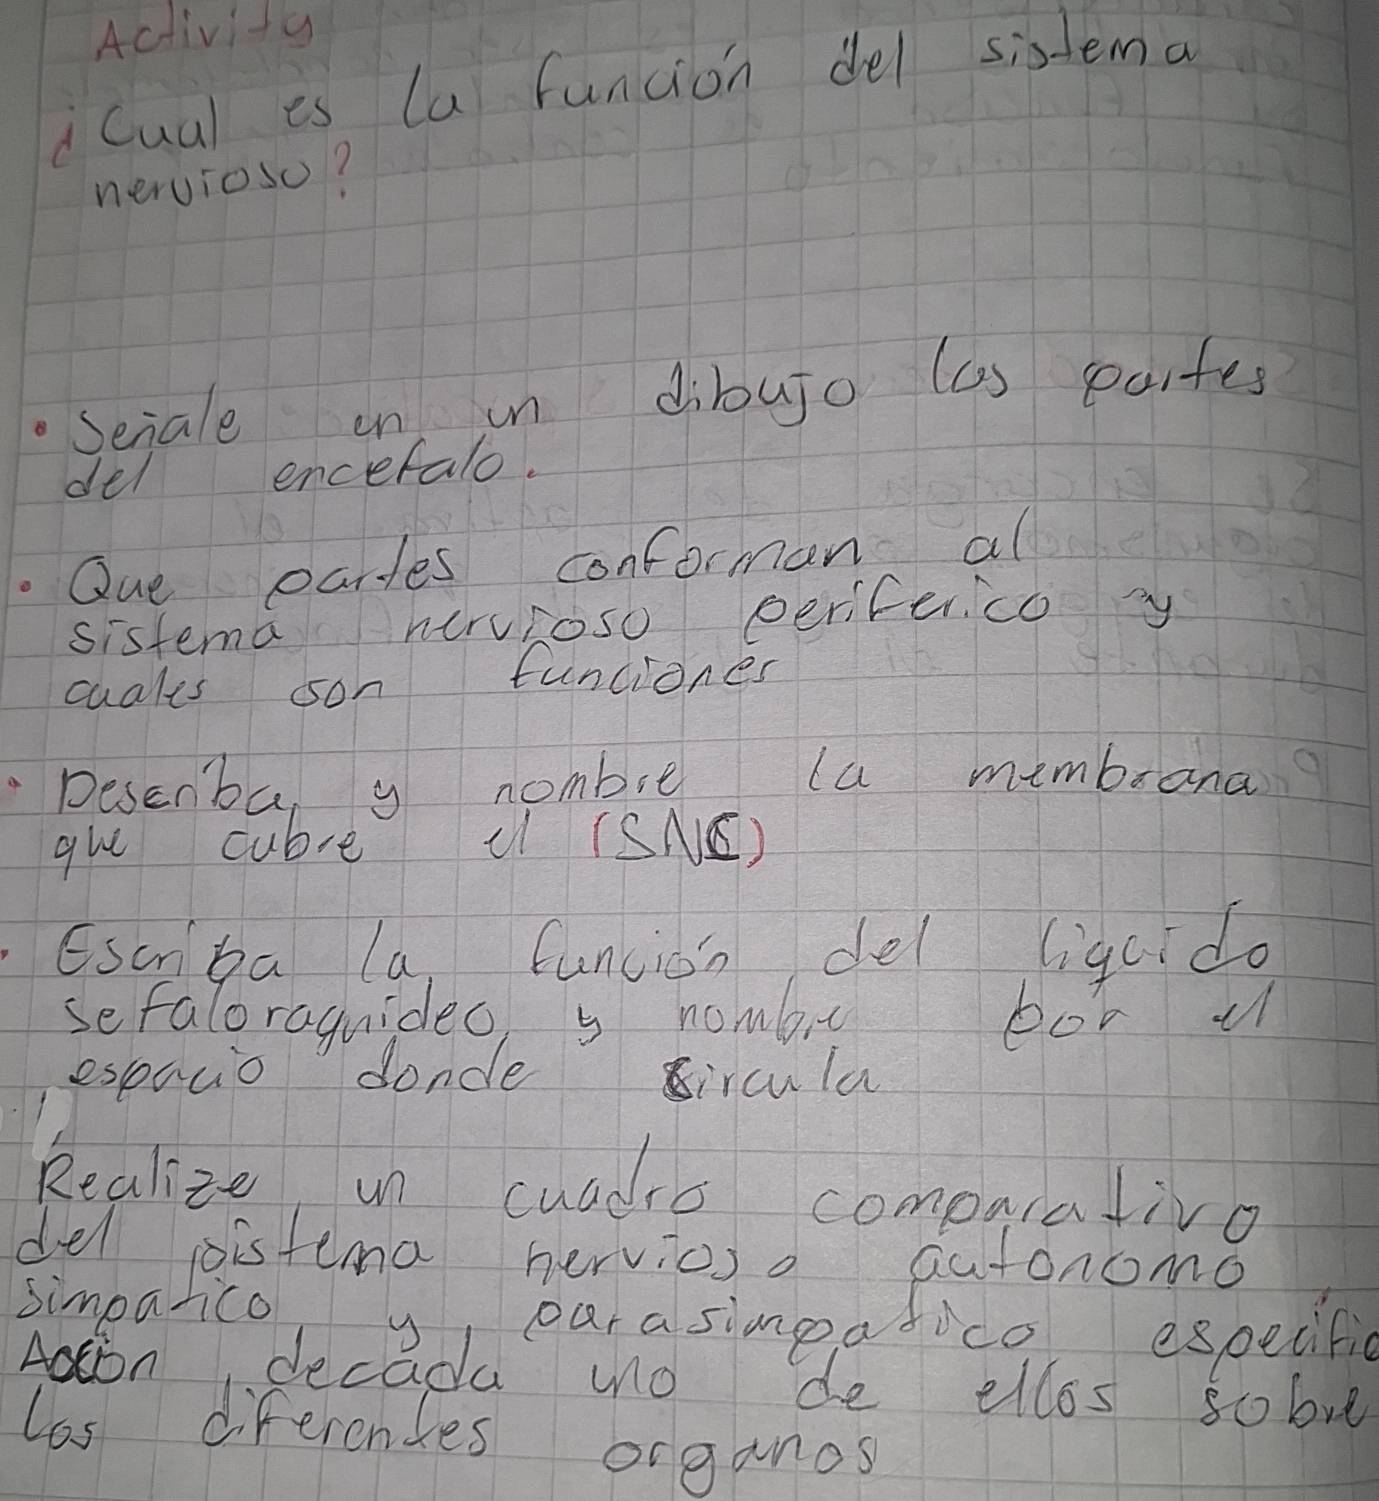 Activity
¿Cual es la función del sistema
nervioso?
• Señale en un dibujo las partes
del encefalo.
• Que partes conforman al
sistema nervioso periferico y
cuales son funciones
• Describa, y nombre la membrana
que cubre el (SNC)
• Escriba la, función, del liquido
sefaloraquideo, y nombre por el
espacio donde circula
Realize, un cuadro comparativo
del sistema nervioso autonomo
simpatico, y, parasimpatico especific
Accion, decada uno de ellos sobre
los diferentes organos